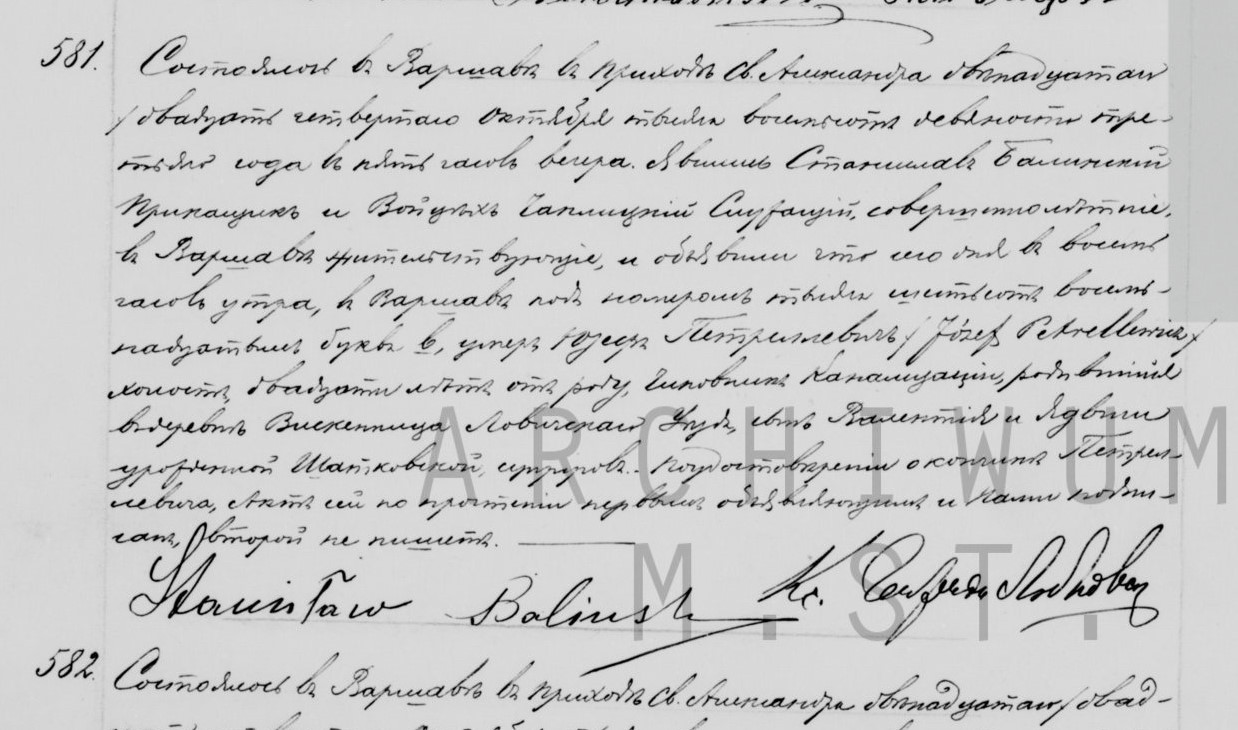 581. Состоялось въ Варшавѣ въ приходѣ Св. Александра двѣнадцатаго
/двадцать четвертаго Октября тысяча восемьсотъ девяносто тре-
тьяго года въ пять часовъ вечера. Явились Станиславъ Балинскій
Прикащикъ и Войцѣхъ Чаплицкій Служащій, совершеннолѣтніе,
въ Варшавѣ жительствующіе, и объявили что сего дня въ восемь
часовъ утра, въ Варшавѣ подъ номеромъ тысяча шестьсотъ восемь-
надцатымъ буквъ в, умеръ Юзефъ Петрилевичъ /Józef Petrellewicz/
холостъ, двадцати лѣтъ отъ роду, Чиновникъ Канализаціи, родившійся
въ деревнѣ Вискенница Ловичскаго Уѣзда, сынъ Валентія и Ядвиги
урожденной Шатковской, супруговъ. - По удостовѣреніи о кончинѣ Петри-
левича, Актъ сей по прочтеніи первымъ объявляющимъ и Нами подпи-
санъ, второй не пишетъ.
Stanisław Balinski Кс.
582. Состоялось въ Варшавѣ въ приходѣ Св. Александра двѣнадцатаго /двад-
ARCHIWUM
M.ST.